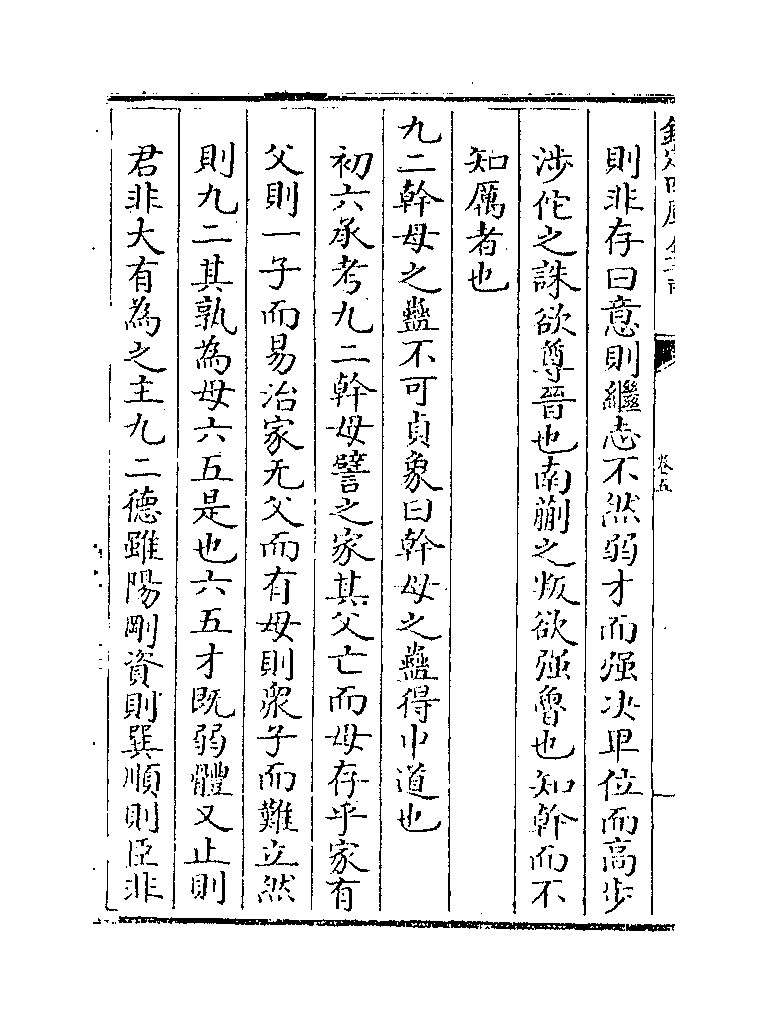 欽定四庫全書
卷五
則非存曰意則繼志不然弱才而强决卑位而高步
涉佗之誅欲尊晉也南蒯之叛欲强魯也知幹而不
知厲者也
九二幹母之蠱不可貞象曰幹母之蠱得中道也
初六承考九二幹母譬之家其父亡而母存乎家有
父則一子而易治家无父而有母則衆子而難立然
則九二其孰為母六五是也六五才既弱體又止則
君非大有為之主九二德雖陽剛資則巽順則臣非